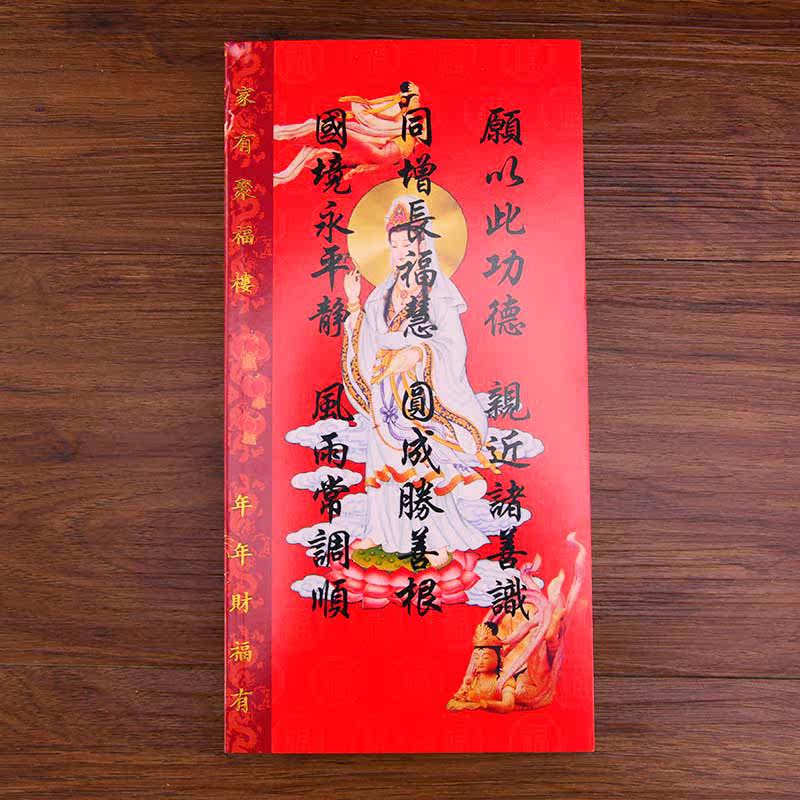 願以此功德 親近諸善識
同增長福慧 圓成勝善根
國境永平静 風雨常調順
家有聚福樓 年年財福有